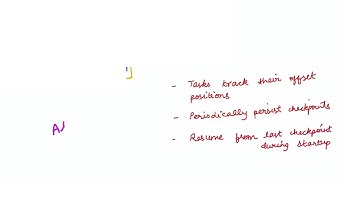 - Tasks track their offset
positions
- Periodically persist checkpoints
- Resume from last checkpoint
during startup